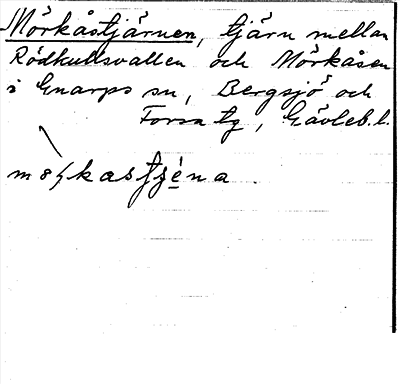 Mörkåstjärnen, tjärn mellan
Rödkullsvallen och Mörkåsen
i Gnarps sn, Bergsjö och
Forsa tg, Gävleb.l.